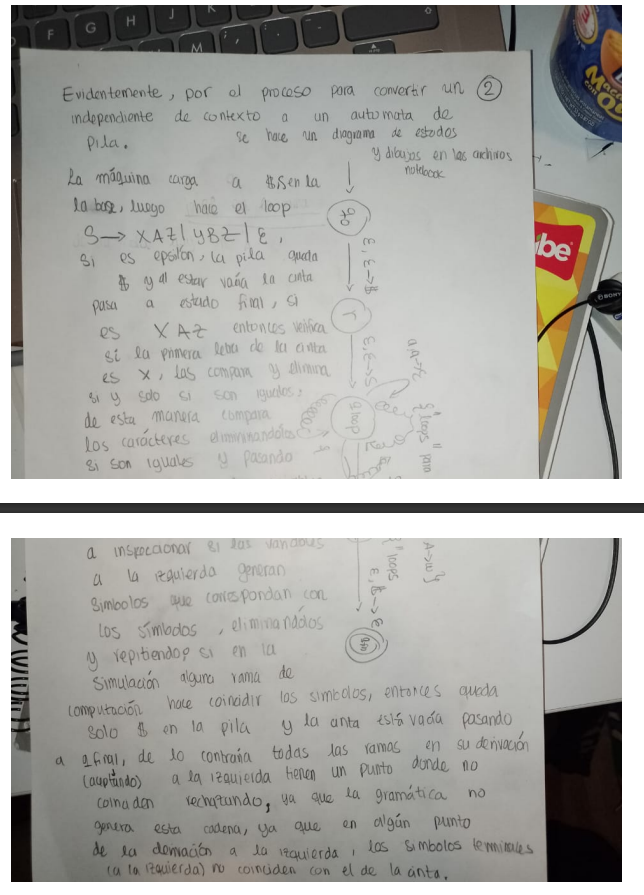 F G H J K
M
Evidentemente, por el proceso para convertir un ②
independiente de contexto a un automata de
pila. se hace un diagrama de estados
y dibujos en los archivos
notebook
La máquina carga a $S en la
la base, luego hace el loop
S → XAZ | YBZ | ε,
si es epsilon, la pila queda
$ y al estar vacía la cinta
pasa a estado final, si
es XAZ entonces verifica
si la primera letra de la cinta
es X, las compara y elimina
si y solo si son iguales,
de esta manera compara
los carácteres elimininandolos
si son iguales y pasando
q0
ε, ε → $
r
ε, ε → S
qloop
{" loops " para
be
SONY
a inspeccionar si las variables
a la izquierda generan
simbolos que correspondan con
los símbolos , eliminandolos
y repitiendo, si en la
simulación alguna rama de
computación hace coincidir los simbolos, entonces queda
solo $ en la pila y la cinta está vacía pasando
a qfinal, de lo contraria todas las ramas en su derivación
(aceptando) a la izquierda tienen un punto donde no
coinciden rechazando, ya que la gramática no
genera esta cadena, ya que en algún punto
de la derivación a la izquierda, los simbolos terminales
(a la izquierda) no coinciden con el de la cinta.
{" loops
A→w }
ε, $ → ε